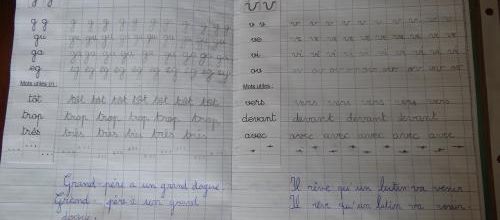 g g g g g g g g g g g g
gu gu gu gu gu gu gu gu gu
ga ga ga ga ga ga ga ga ga
eg eg eg eg eg eg eg eg eg eg
Mots utiles
tôt tôt tôt tôt tôt tôt tôt tôt
trop trop trop trop trop trop
très très très très très très
Grand-père a un grand dogue.
Grand-père a un grand
dogue.
v v
v v v v v v v v v v v v
ve ve ve ve ve ve ve ve ve
vi vi vi vi vi vi vi vi vi
ov ov ov ov ov ov ov ov ov
Mots utiles
vers vers vers vers vers vers
devant devant devant devant
avec avec avec avec avec avec
Il rêve qu'un lutin va venir.
Il rêve qu'un lutin va venir.